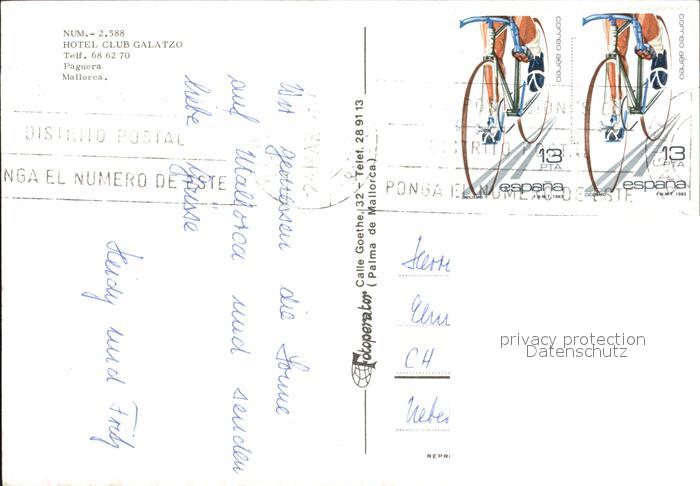 NUM.- 2.588
HOTEL CLUB GALATZO
Telf. 68 62 70
Paguera
Mallorca.
Wir genossen die Sonne
auf Mallorca und senden
liebe Grüsse
Heidy und Fritz
DISTRITO POSTAL
NGA EL NUMERO DE ESTE
Fotoperator Calle Goethe, 32 - Telef. 28 91 13
(Palma de Mallorca)
correo aéreo
13
PTA
españa
CICLISMO F.N.M.T. 1983
correo aéreo
13
PTA
españa
CICLISMO F.N.M.T. 1983
DISTRITO
PONGA EL NUMERO DE ESTE
Herrn
CH
privacy protection
Datenschutz
REPR